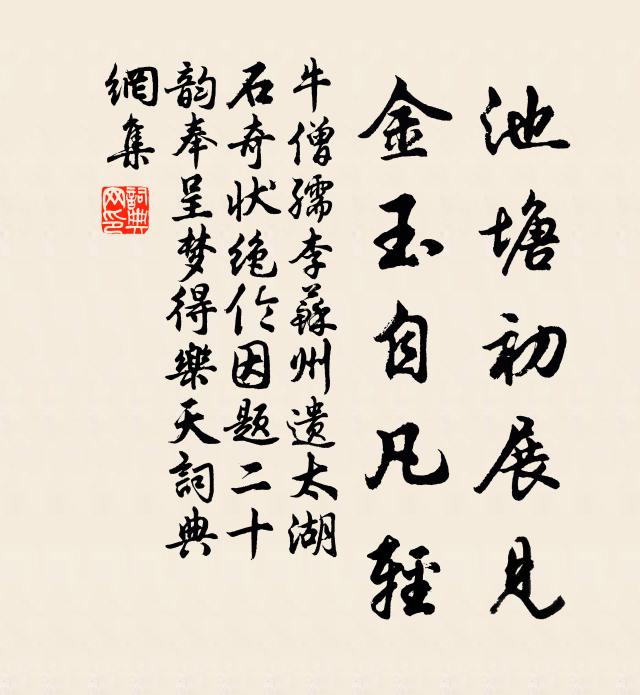 池塘初展見
金玉自凡輕
牛僧孺李蘇州遺太湖
石奇状絶伦因題二十
韵奉呈梦得樂天詞典
網集
詞典
网印